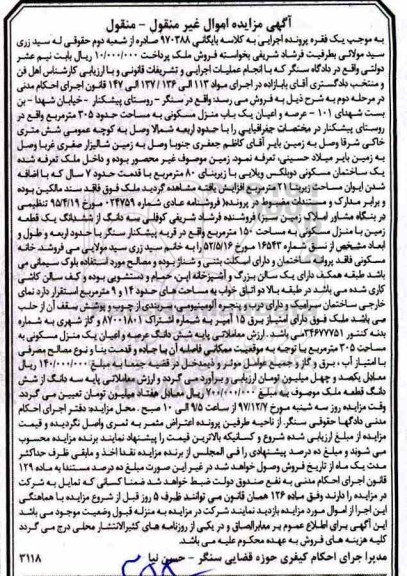 آگهی مزایده اموال غیر منقول - منقول
به موجب یک فقره پرونده اجرایی به کلاسه بایگانی ۹۷۰۳۸۸ صادره از شعبه دوم حقوقی له سید زری
سید مولائی بطرفیت فرشاد شریفی بخواسته فروش ملک پرداخت ۱۰/۰۰۰/۰۰۰ ریال بابت نیم عشر
دولتی واقع در دادگاه سنگر که با انجام عملیات اجرایی و تشریفات قانونی و با ارزیابی کارشناس اهل فن
و منتخب دادگستری آقای بابازاده در اجرای مواد ۱۱۳ الی ۱۳۶ / ۱۳۷ الی ۱۴۷ قانون اجرای احکام مدنی
در مرحله دوم به شرح ذیل به فروش می رسد: واقع در سنگر - روستای پیشکنار - خیابان شهدا - بن
بست شهدای ۱۰۱ - عرصه و اعیان یک باب منزل مسکونی به مساحت حدود ۳۰۵ مترمربع واقع در
روستای پیشکنار در مختصات جغرافیایی را با حدود اربعه شمالا وصل به کوچه عمومی شش متری
خاکی شرقا وصل به زمین بایر آقای کاظم جعفری جنوبا وصل به زمین شالیزار صفری غربا وصل
به زمین بایر میلاد حسینی، تعرفه نمود. زمین موصوف غیر محصور بوده و داخل ملک تعرفه شده
یک ساختمان مسکونی دوبلکس ویلایی با زیربنای ۸۰ مترمربع با قدمت حدود ۷ سال که با اضافه
شدن ایوان مساحت زیربنا افزایش یافته مشاهده گردید. ملک فوق فاقد سند مالکین بوده
و برابر مدارک و مستندات مضبوط در پرونده( فروشنامه عادی شماره ۰۲۴۷۵۹ مورخ ۹۵/۴/۱۹ تنظیمی
در بنگاه مشاور املاک زمین سبز) فروشنده فرشاد شریفی کوفلی سه دانگ از ششدانگ یک قطعه
زمین با منزل مسکونی به مساحت ۱۵۰ مترمربع واقع در قریه پیشکنار سنگر با حدود اربعه و طول و
ابعاد مشخص از نسق شماره ۱۶۵۴۳ مورخ ۵۲/۵/۱۶ را به خانم سید زری سید مولایی می فروشد. خانه
مسکونی فاقد پروانه ساختمان و دارای اسکلت بتنی و شناژ بوده و مصالح مورد استفاده بلوک سیمانی می
باشد طبقه همکف دارای یک سالن بزرگ و آشپزخانه اپن، حمام و دستشویی بوده و کف سالن کاشی
کاری شده می باشد در طبقه بالا دو اتاق خواب به مساحت های حدود ۱۴ و ۹ مترمربع استقرار دارد نمای
خارجی ساختمان سرامیک و دارای درب و پنجره آلومینیومی، سربندی از چوب و پوشش سقف آن از حلب
می باشد ملک فوق دارای امتیاز برق ۱۵ آمپر به شماره اشتراک ۸۷۰۰۱۸۰۱ و گاز شهری به شماره
بدنه کنتور ۳۴۶۷۷۷۵۱ می باشد . ارزش معاملاتی پایه شش دانگ عرصه و اعیان یک منزل مسکونی به
مساحت ۳۰۵ مترمربع با توجه به موقعیت مکانی فاصله آن با جاده و قدمت بنا و نوع مصالح مصرفی
با امتیاز آب ، برق و گاز و جمیع عوامل موثر و ذیمدخل در قضیه جمعا به مبلغ ۱۴۰/۰۰۰/۰۰۰ ریال
معادل یکصد و چهل میلیون تومان ارزیابی و برآورد می گردد و ارزش معاملاتی پایه سه دانگ از شش
دانگ قطعه ملک موصوف به مبلغ ۷۰۰/۰۰۰/۰۰۰ ریال معادل هفتاد میلیون تومان تعیین می گردد.
وقت مزایده روز سه شنبه مورخ ۹۷/۱۲/۷ از ساعت ۹/۵ الی ۱۰ صبح . محل مزایده: دفتر اجرای احکام
مدنی دادگها حقوقی سنگر. از ناحیه طرفین پرونده اعتراض مثمر به ثمری واصل نگردیده و قیمت
مزایده از مبلغ ارزیابی شده شروع و کسانیکه بالاترین قیمت را پیشنهاد نمایند برنده مزایده محسوب
می شوند و مبلغ ده درصد پیشنهادی را فی المجلس از برنده مزایده نقدا اخذ و مابقی ظرف حداکثر
مدت یک ماه از تاریخ فروش وصول خواهد شد در غیر این صورت مبلغ ده درصد مستندا به ماده ۱۲۹
قانون اجرای احکام مدنی به نفع صندوق دولت ضبط خواهد شد ضمنا کسانی که تمایل به شرکت
در مزایده را دارند وفق ماده ۱۲۶ همان قانون می توانند ظرف ۵ روز قبل از شروع مزایده با هماهنگی
این اجرا از اموال مورد مزایده بازدید نمایند شرکت در مزایده به منزله قبول وضعیت موجود می باشد
این آگهی برای اطلاع عموم بر معابرالصاق و در یکی از روزنامه های کثیرالانتشار محلی درج می گردد
کلیه هزینه های فروش به عهده محکوم علیه می باشد.
مدیر اجرای احکام کیفری حوزه قضایی سنگر - حسین نیا ۳۱۱۸